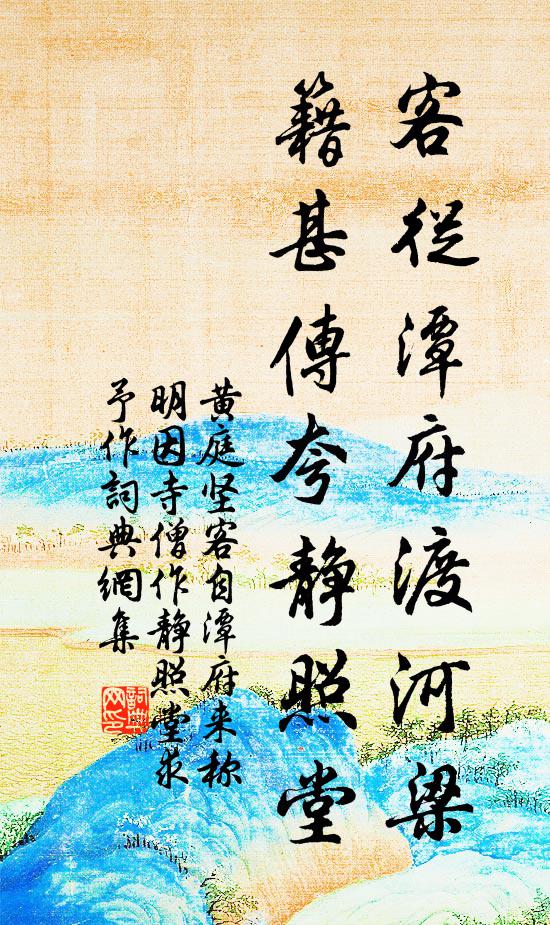 客從潭府渡河梁
籍甚傳夸靜照堂
黄庭坚客自潭府来称
明因寺僧作静照堂求
予作詞典網集